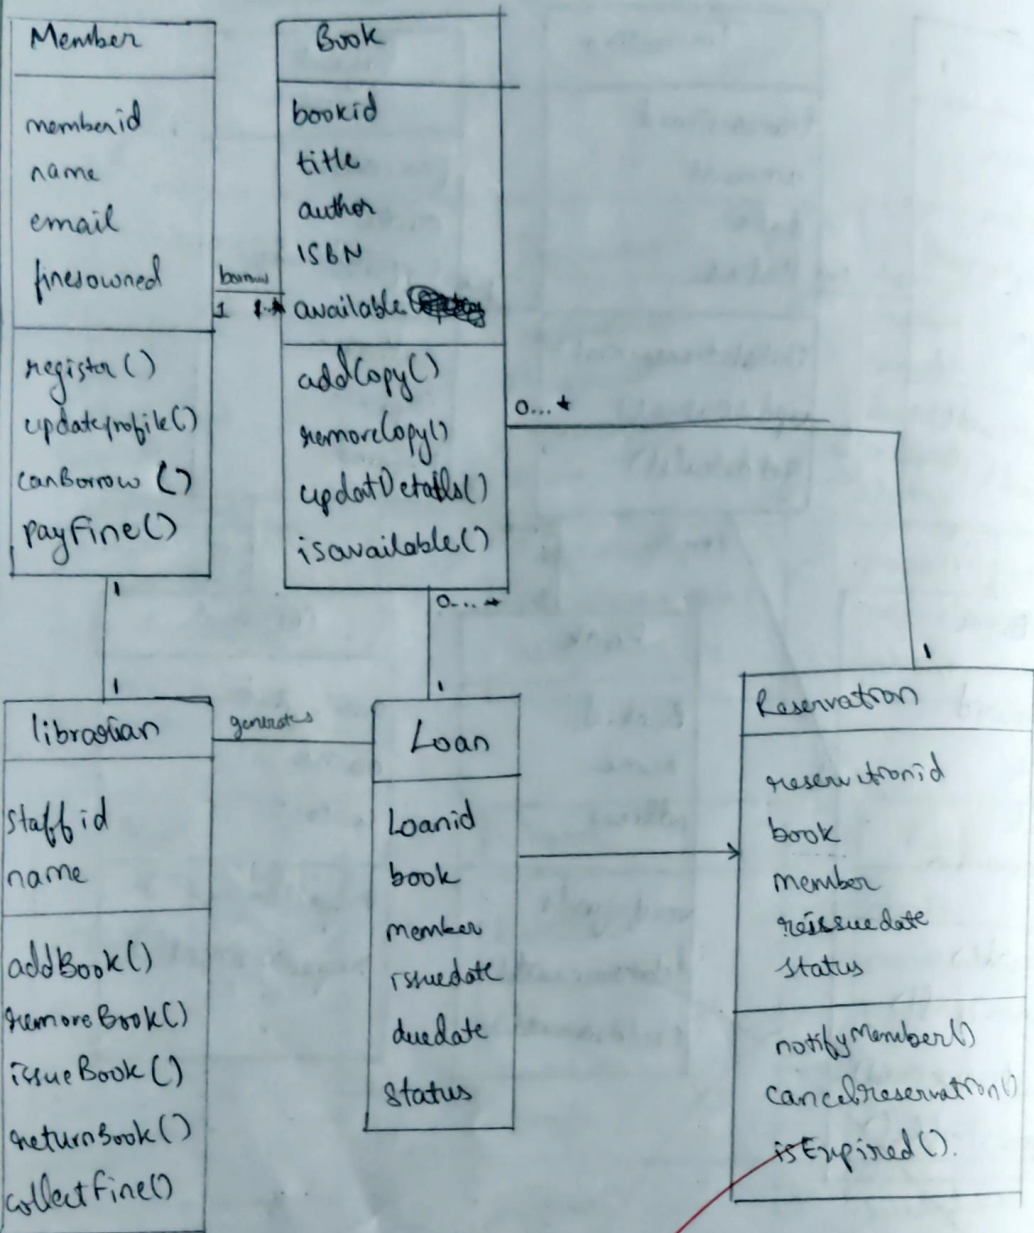 Member
memberid
name
email
finesowned
register()
updateprofile()
canBorrow ()
payFine()
borrow
1 1..*
Book
bookid
title
author
ISBN
available
addCopy()
removeCopy()
updatDetails()
isavailable()
0...*
1
0...*
1
1
1
librarian
staffid
name
addBook()
removeBook()
issueBook()
returnBook()
collectFine()
generates
Loan
Loanid
book
member
issuedate
duedate
status
Reservation
reservationid
book
member
reissuedate
status
notifyMember()
cancelreservation()
isExpired().